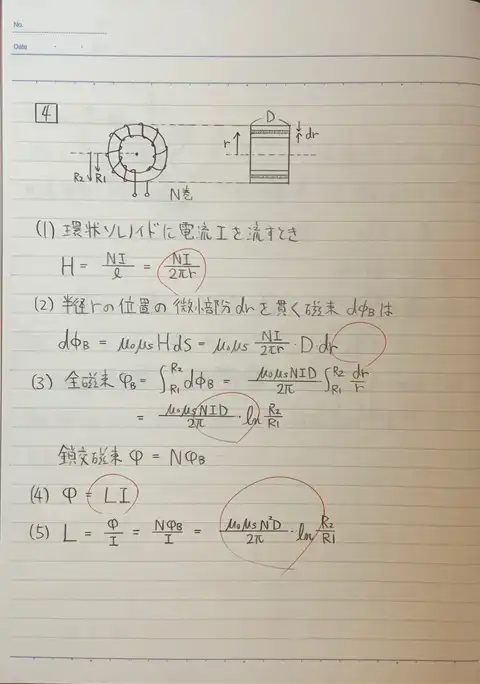 No.
Date
4
D
dr
r
R2 R1
N巻
(1) 環状ソレノイドに電流Iを流すとき
H = NI/l = NI/2πr
(2) 半径rの位置の微小部分drを貫く磁束 dφBは
dφB = μ0μs H ds = μ0μs NI/2πr · D · dr
(3) 全磁束 φB = ∫R1R2 dφB = μ0μsNID/2π ∫R1R2 dr/r
= μ0μsNID/2π · ln R2/R1
鎖交磁束 φ = NφB
(4) φ = LI
(5) L = φ/I = NφB/I = μ0μsN²D/2π · ln R2/R1